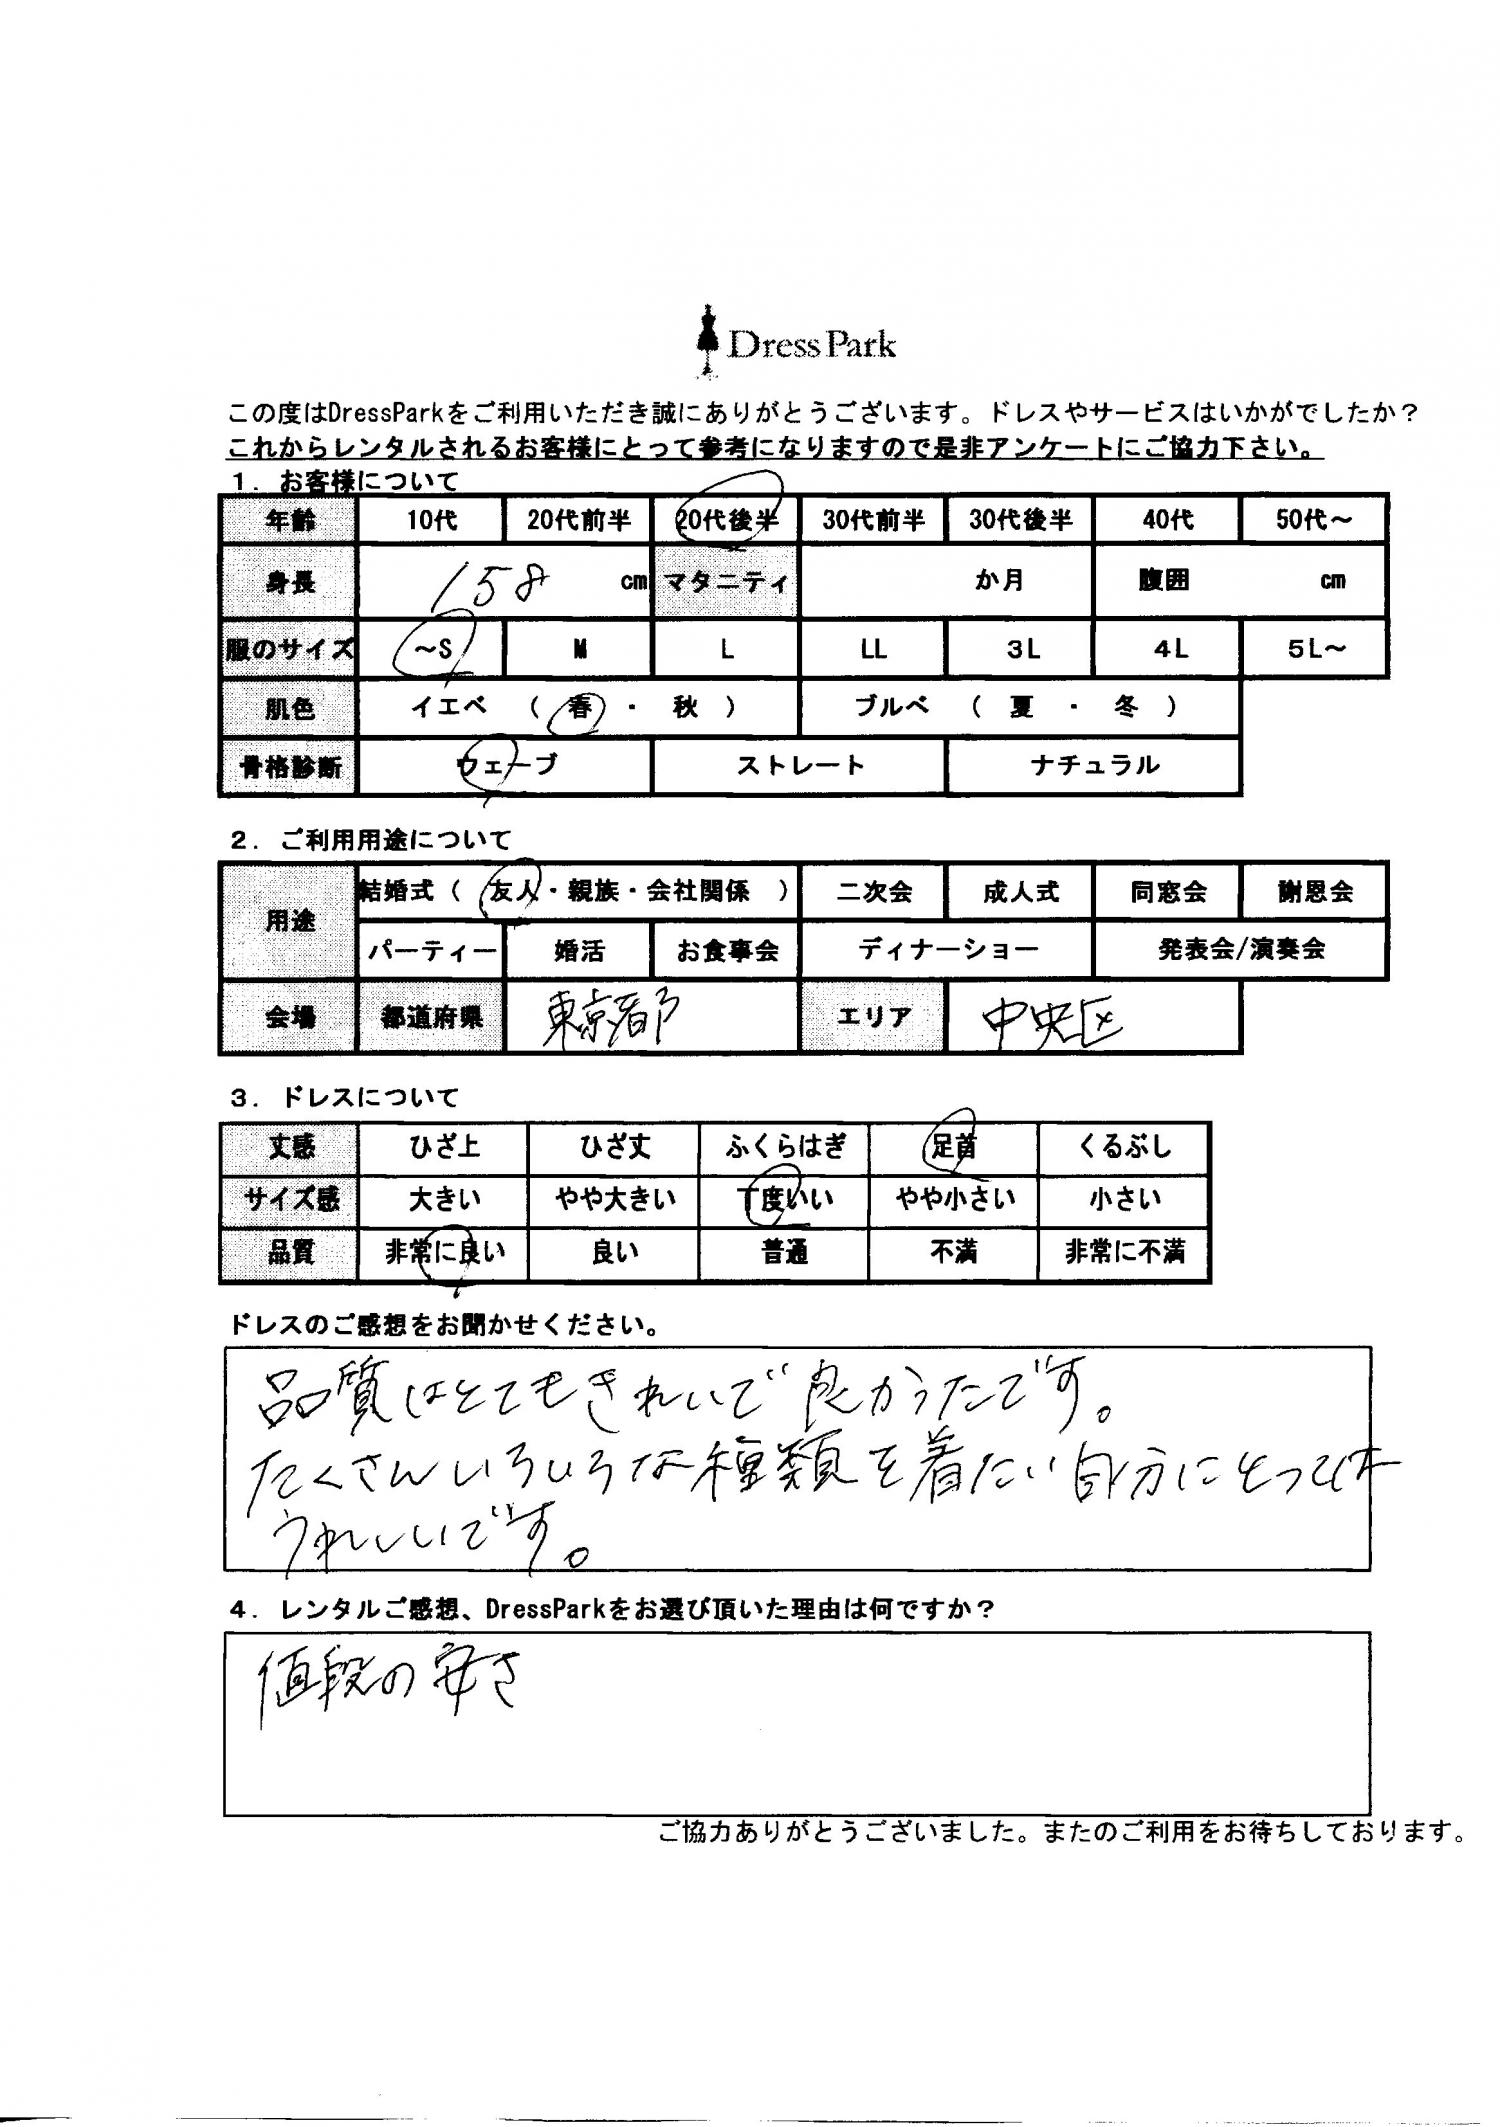 DressPark
この度はDressParkをご利用いただき誠にありがとうございます。ドレスやサービスはいかがでしたか？
これからレンタルされるお客様にとって参考になりますので是非アンケートにご協力下さい。
１．お客様について
年齢 10代 20代前半 20代後半 30代前半 30代後半 40代 50代～
身長 158 cm マタニティ か月 腹囲 cm
服のサイズ ～S M L LL 3L 4L 5L～
肌色 イエベ （ 春 ・ 秋 ） ブルベ （ 夏 ・ 冬 ）
骨格診断 ウェーブ ストレート ナチュラル
２．ご利用用途について
用途 結婚式（ 友人・親族・会社関係 ） 二次会 成人式 同窓会 謝恩会
パーティー 婚活 お食事会 ディナーショー 発表会/演奏会
会場 都道府県 東京都 エリア 中央区
３．ドレスについて
丈感 ひざ上 ひざ丈 ふくらはぎ 足首 くるぶし
サイズ感 大きい やや大きい 丁度いい やや小さい 小さい
品質 非常に良い 良い 普通 不満 非常に不満
ドレスのご感想をお聞かせください。
品質はとてもきれいで良かったです。
たくさんいろいろな種類を着たい自分にとっては
うれしいです。
４．レンタルご感想、DressParkをお選び頂いた理由は何ですか？
値段の安さ
ご協力ありがとうございました。またのご利用をお待ちしております。